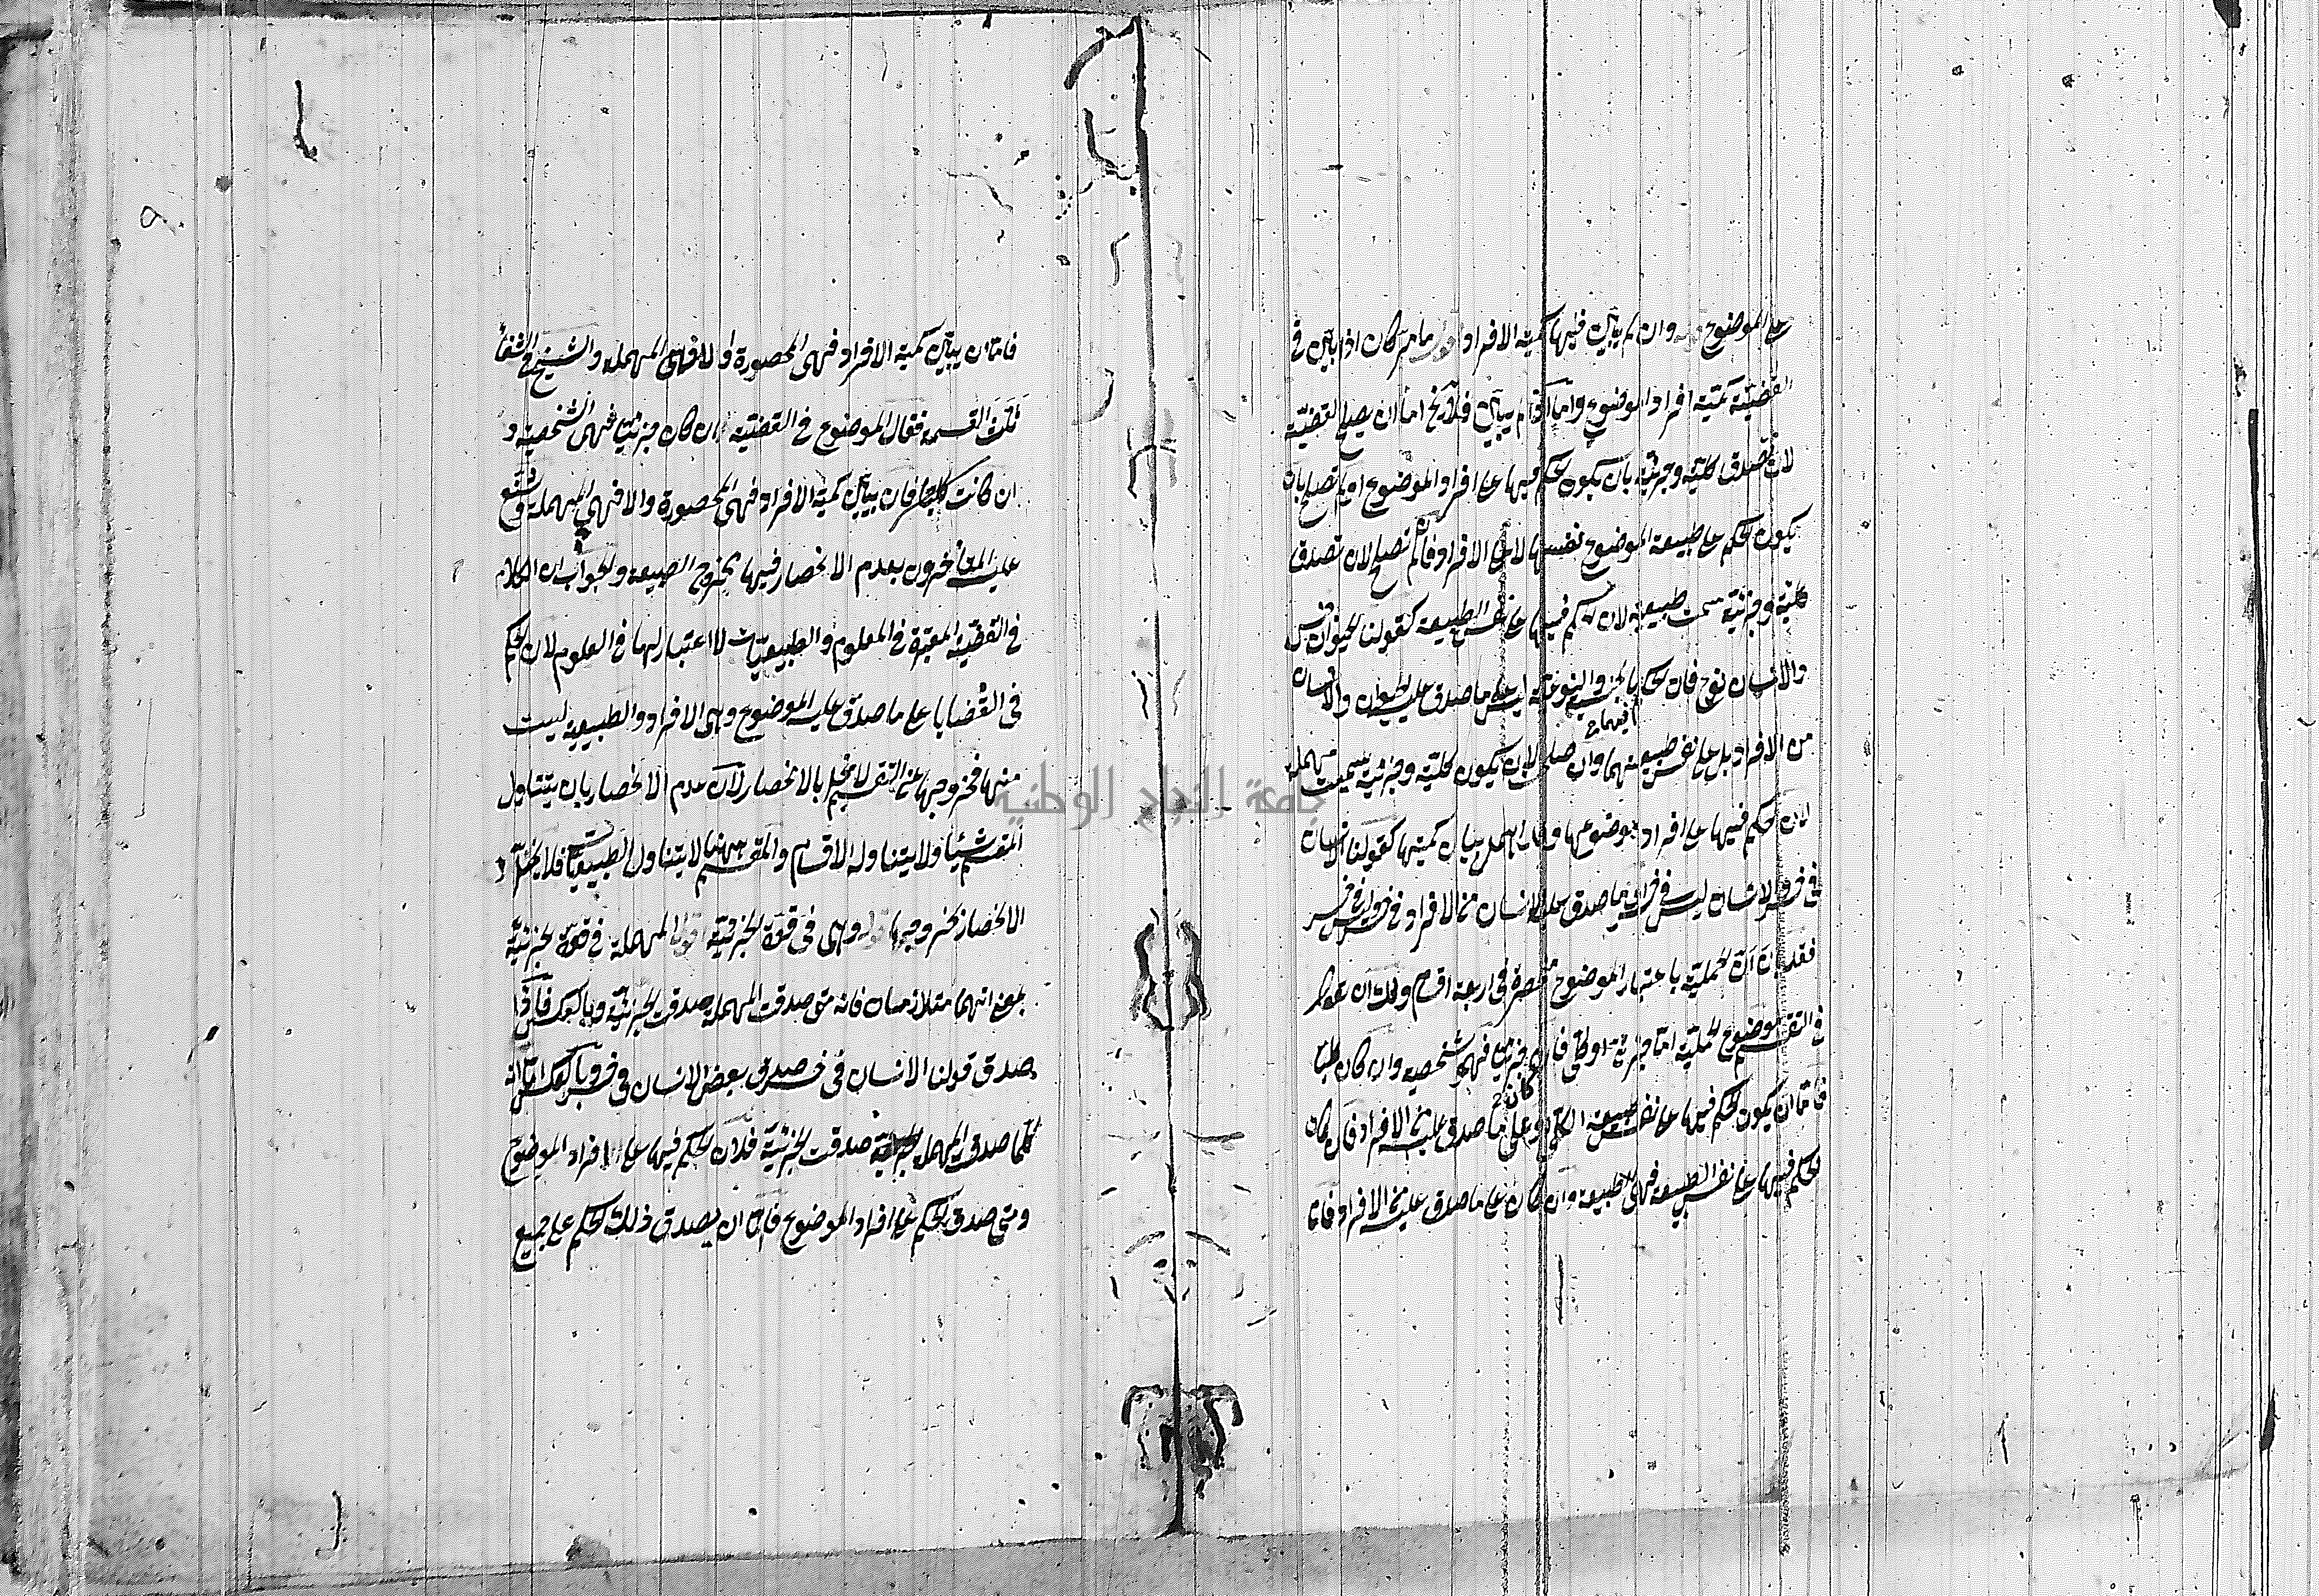 على الموضوع وان لم يبين فيها كمية الافراد اقول ما مر كان اذا بين في
القضية كمية افراد الموضوع واما اذا لم يبين فلا يخ اما ان يصلح القضية
لان تصدق كلية وجزئية بان يكون الحكم فيها على افراد الموضوع او لم تصلح بان
يكون الحكم على طبيعة الموضوع نفسها لا على الافراد فان لم تصلح لان تصدق
كلية وجزئية سميت طبيعية لان الحكم فيها على نفس الطبيعة كقولنا الحيوان جنس
والانسان نوع فان الحكم بالجنسية والنوعية ليس على ما صدق عليه الحيوان والانسان
من الافراد بل على نفس طبيعتهما وان صلحت لان يكون كلية وجزئية سميت مهملة
لان الحكم فيها على افراد موضوعها وقد اهمل بيان كميتها كقولنا الانسان
في خسر والانسان ليس في خسر اي ما صدق عليه الانسان من الافراد في خسر وليس في خسر
فقد بان ان الحملية باعتبار الموضوع منحصرة في اربعة اقسام ولك ان تقول
في التقسيم موضوع الحملية اما جزئي او كلي فان كان جزئيا فهي شخصية وان كان كليا
فاما ان يكون الحكم فيها على نفس طبيعة الكلي او على ما صدق عليه من الافراد فان كان
الحكم فيها على نفس الطبيعة فهي طبيعية وان كان على ما صدق عليه من الافراد فاما
فاما ان يبين كمية الافراد فهي المحصورة اولا فهي المهملة والشيخ في الشفا
ثلث القسمة فقال الموضوع في القضية ان كان جزئيا فهي الشخصية و
ان كانت كليا فان بين كمية الافراد فهي المحصورة والا فهي المهملة وشنع
عليه المتأخرون بعدم الانحصار فيها بخروج الطبيعية والجواب ان الكلام
في القضية المعتبرة في العلوم والطبيعيات لا اعتبار لها في العلوم لان الحكم
في القضايا على ما صدق عليه الموضوع وهي الافراد والطبيعية ليست
منها فخروجها عن التقسيم لا يخل بالانحصار لان عدم الانحصار بان يتناول
المقسم شيئا ولا يتناوله الاقسام والمقسم ههنا لا يتناول الطبيعيات فلا يختل
الانحصار بخروجها قوله وهي في قوة الجزئية اقول المهملة في قوة الجزئية
بمعنى انهما متلازمتان فانه متى صدقت المهملة صدقت الجزئية وبالعكس فاذا
صدق قولنا الانسان في خسر صدق بعض الانسان في خسر وبالعكس اما انه
كلما صدقت المهملة صدقت الجزئية فلان الحكم فيها على افراد الموضوع
ومتى صدق الحكم على افراد الموضوع فاما ان يصدق ذلك الحكم على جميع
جامعة النجاح الوطنية